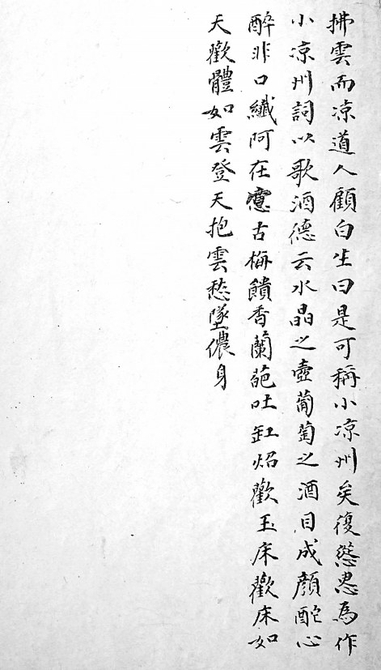 拂雲而凉道人顧白生曰是可稱小凉州矣復慫恿為作
小凉州詞以歌酒德云水晶之壺葡萄之酒目成顏酡心
醉非口纖阿在窻古梅饋香蘭葩吐缸焰歡玉床歡床如
天歡體如雲登天抱雲愁墜儂身